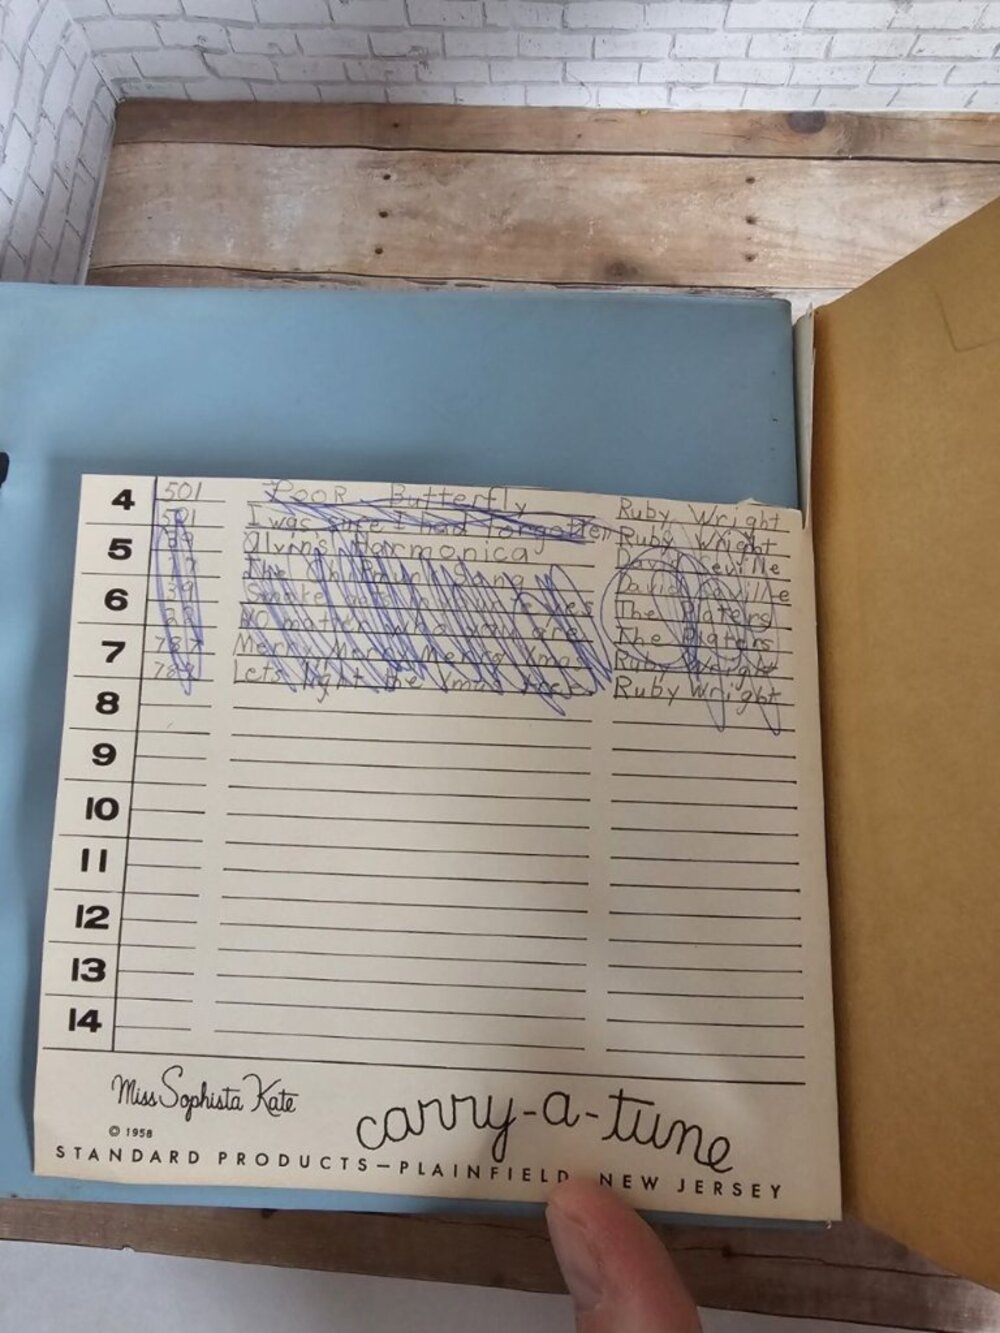 4 501 Poor Butterfly Ruby Wright
501 I was sure I had forgotten Ruby Wright
5 39 Alvin's Harmonica David Seville
The Song David Seville
6 39 Smoke gets in your eyes The Platers
NO matter who you are The Platers
7 787 Merry Merry Merry Xmas Ruby Wright
787 Lets light the Xmas tree Ruby Wright
8
9
10
11
12
13
14
Miss Sophista Kate
© 1958
carry-a-tune
STANDARD PRODUCTS—PLAINFIELD, NEW JERSEY